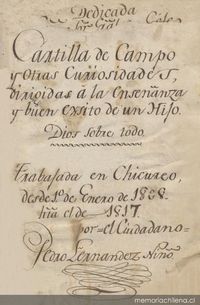 Dedicada
Cartilla de Campo
y otras Curiosidades,
dirigidas á la Enseñanza
y buen exsito de un Hijo.
Dios sobre todo
Trabajada en Chicureo,
desde 1º de Enero de 1808.
hta el de 1817.
por el Ciudadano
Pedro Fernandez Niño
memoriachilena.cl